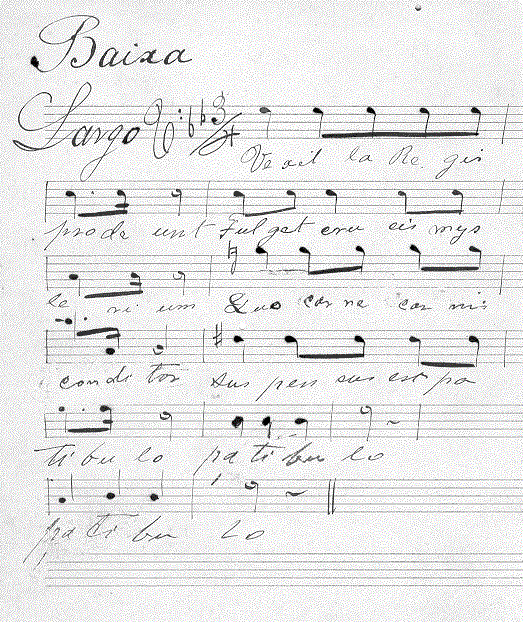 Baixa
Largo 3/4
Ve xil la Re gis
prode unt Fulget cru cis mys
te ri um Quo carne car nis
condi tor sus pen sus est pa
ti bu lo pa ti bu lo
pa ti bu lo